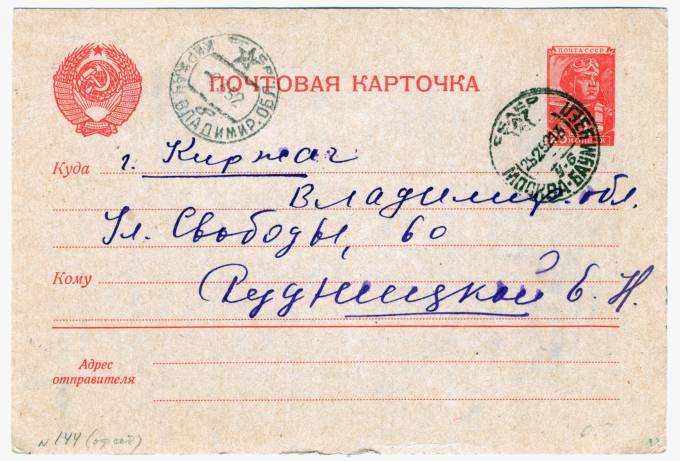 ПОЧТОВАЯ КАРТОЧКА
ПОЧТА СССР
КОПЕЕК
КИРЖАЧ ВЛАДИМИР. ОБЛ.
МОСКВА-БАУМ
Куда г. Киржач
Владимир. обл.
Ул. Свободы, 60
Кому Рудницкой Б. Н.
Адрес
отправителя
N 144 (офсет)